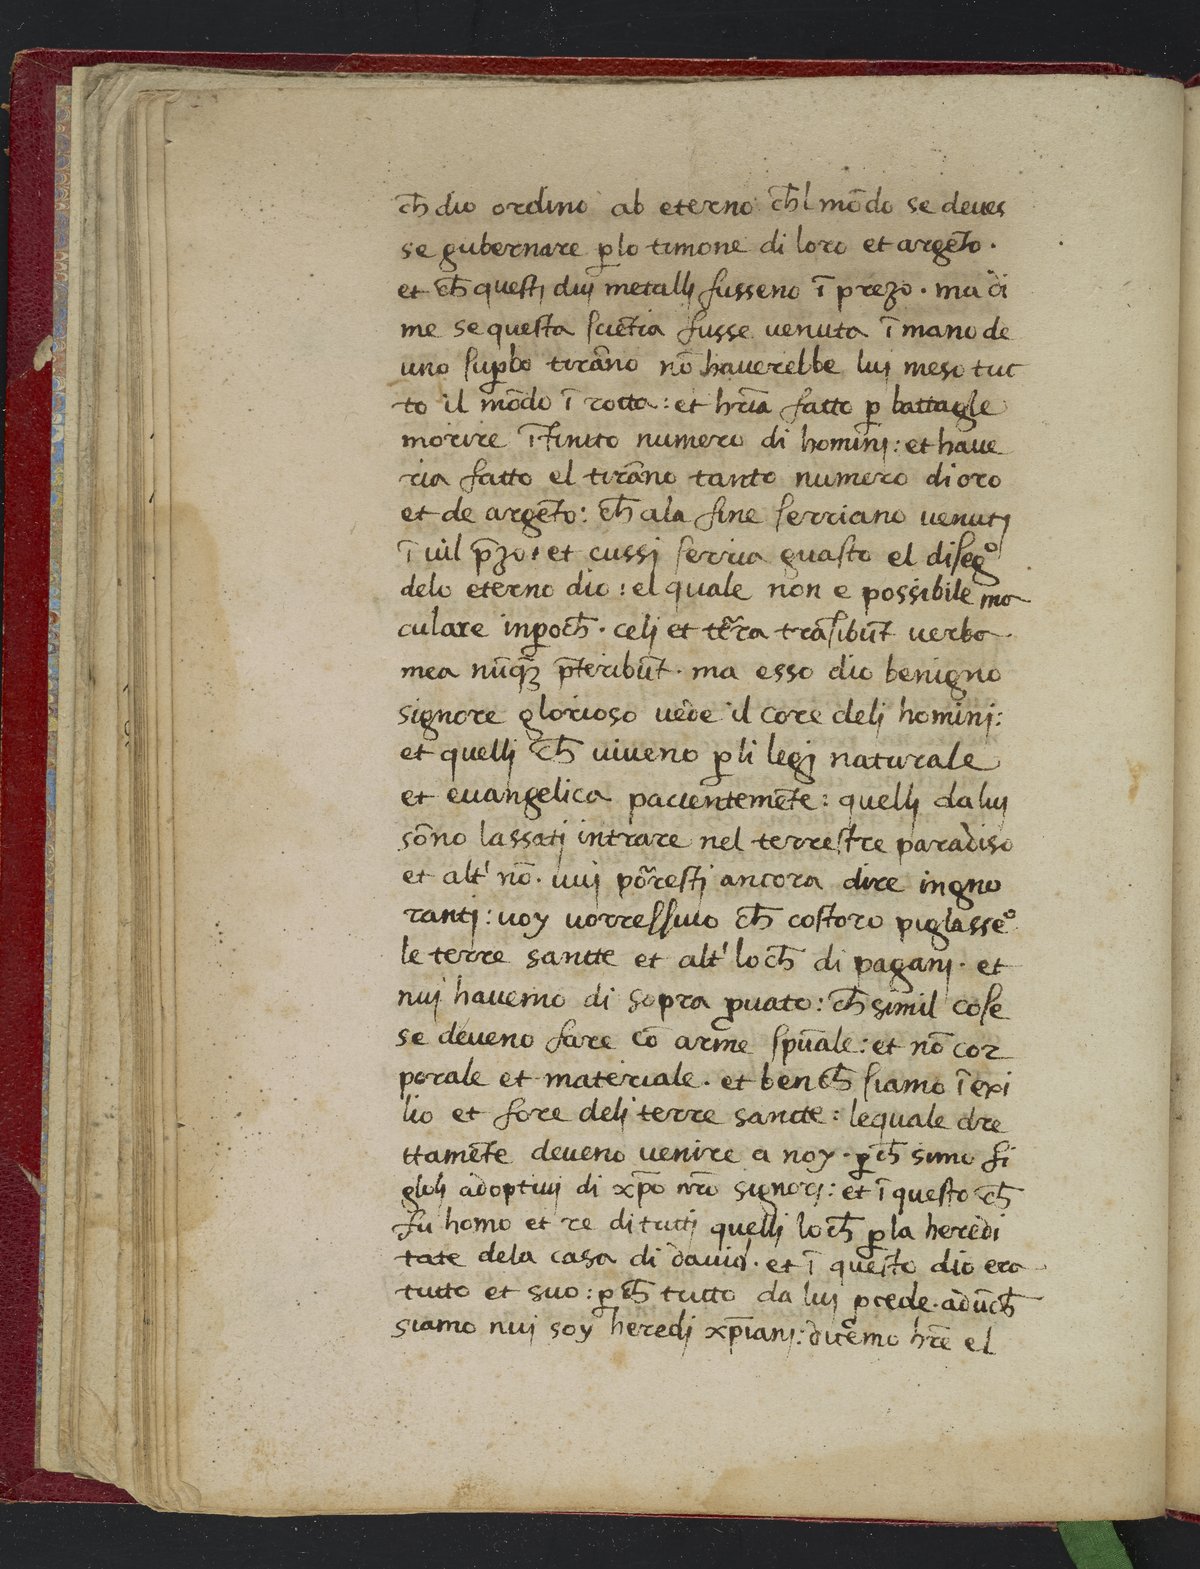 ch̄ dio ordino ab eterno ch̄l mōdo se deues
se gubernare ꝑ lo timone di loro et argēto ·
et ch̄ questi dui metalli fusseno ī prezo · ma di
me se questa sciētia fusse venuta ī mano de
uno suꝑbo tirāno nō haverebbe lui meso tut
to il mōdo ī rotta : et hr̄ia fatto ꝑ battagle
morire īfinito numero di homini : et haue
ria fatto el tirāno tanto numero di oro
et de argēto : ch̄ ala fine serriano venuti
ī uil p̄zo · et cussi serria guasto el disegº
delo eterno dio : el quale non e possibile mo
culare inꝑoch̄ · celi et tēr̄a trāsibūt verba
mea nūqꝫ p̄teribūt · ma esso dio benigno
signore glorioso vede il core deli homini :
et quelli ch̄ viueno ꝑ li legi naturale
et euangelica pacientemēte : quelli da lui
sōno lassati intrare nel terrestre paradiso
et alt' nō · uui pōresti ancora dire ingno
ranti : uoy uorressiuo ch̄ costoro piglasseº
le terre santte et alt' loch̄ di pagani · et
nui hauemo di sopra ꝓuato : ch̄ simil cose
se deueno fare cō arme spūale : et nō cor
porale et materiale · et bench̄ siamo ī exi
lio et fore deli terre sancte : lequale dre
ttamēte deueno venire a noy · ꝑch̄ simo fi
gloli adoptiui di xp̄o nr̄o signori : et ī questo ch̄
fu homo et re di tutti quelli loch̄ ꝑ la heredi
tate dela casa di dauid · et ī questo dio era
tutto et suo : ꝑch̄ tutto da lui ꝓcede · adūch̄
siamo nui soy heredi xp̄iani : dicemo hr̄e el